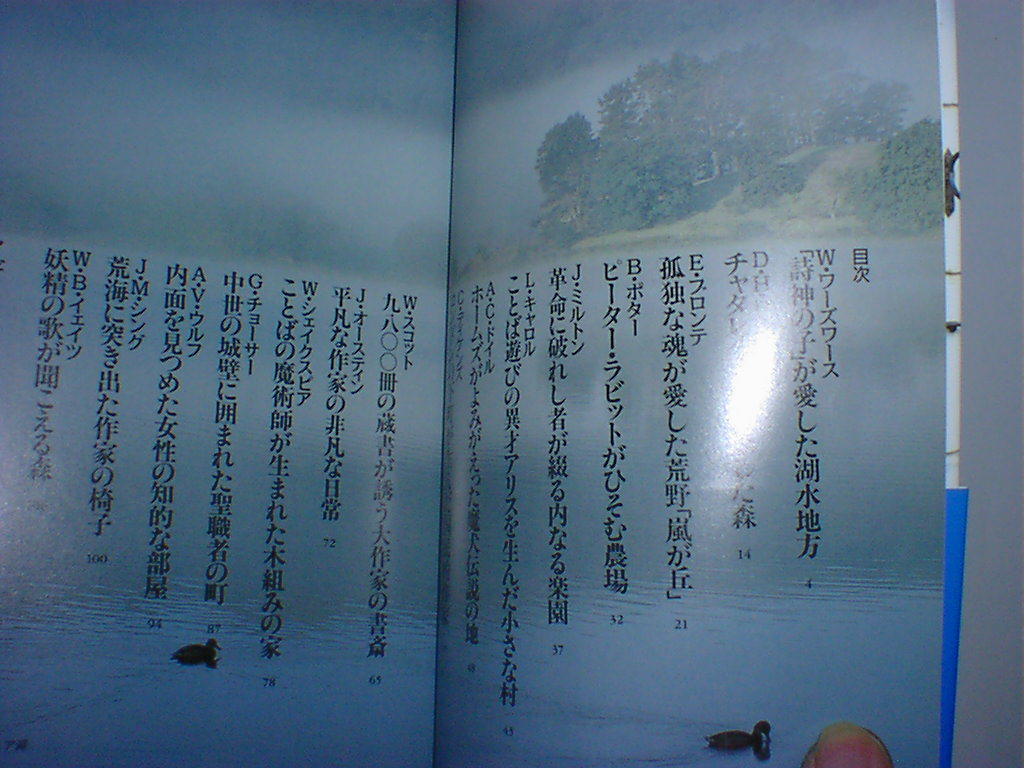 目次
W・ワーズワース
「詩神の子」が愛した湖水地方 4
D・H
チャタレ
た森 14
E・ブロンテ
孤独な魂が愛した荒野「嵐が丘」 21
B・ポター
ピーター・ラビットがひそむ農場 32
J・ミルトン
革命に破れし者が綴る内なる楽園 37
L・キャロル
ことば遊びの異才アリスを生んだ小さな村 43
A・C・ドイル
ホームズがよみがえった魔犬伝説の地 48
C・ディケンズ
W・スコット
九八〇〇冊の蔵書が誘う大作家の書斎 65
J・オースティン
平凡な作家の非凡な日常 72
W・シェイクスピア
ことばの魔術師が生まれた木組みの家 78
G・チョーサー
中世の城壁に囲まれた聖職者の町 87
A・V・ウルフ
内面を見つめた女性の知的な部屋 94
J・M・シング
荒海に突き出た作家の椅子 100
W・B・イェイツ
妖精の歌が聞こえる森